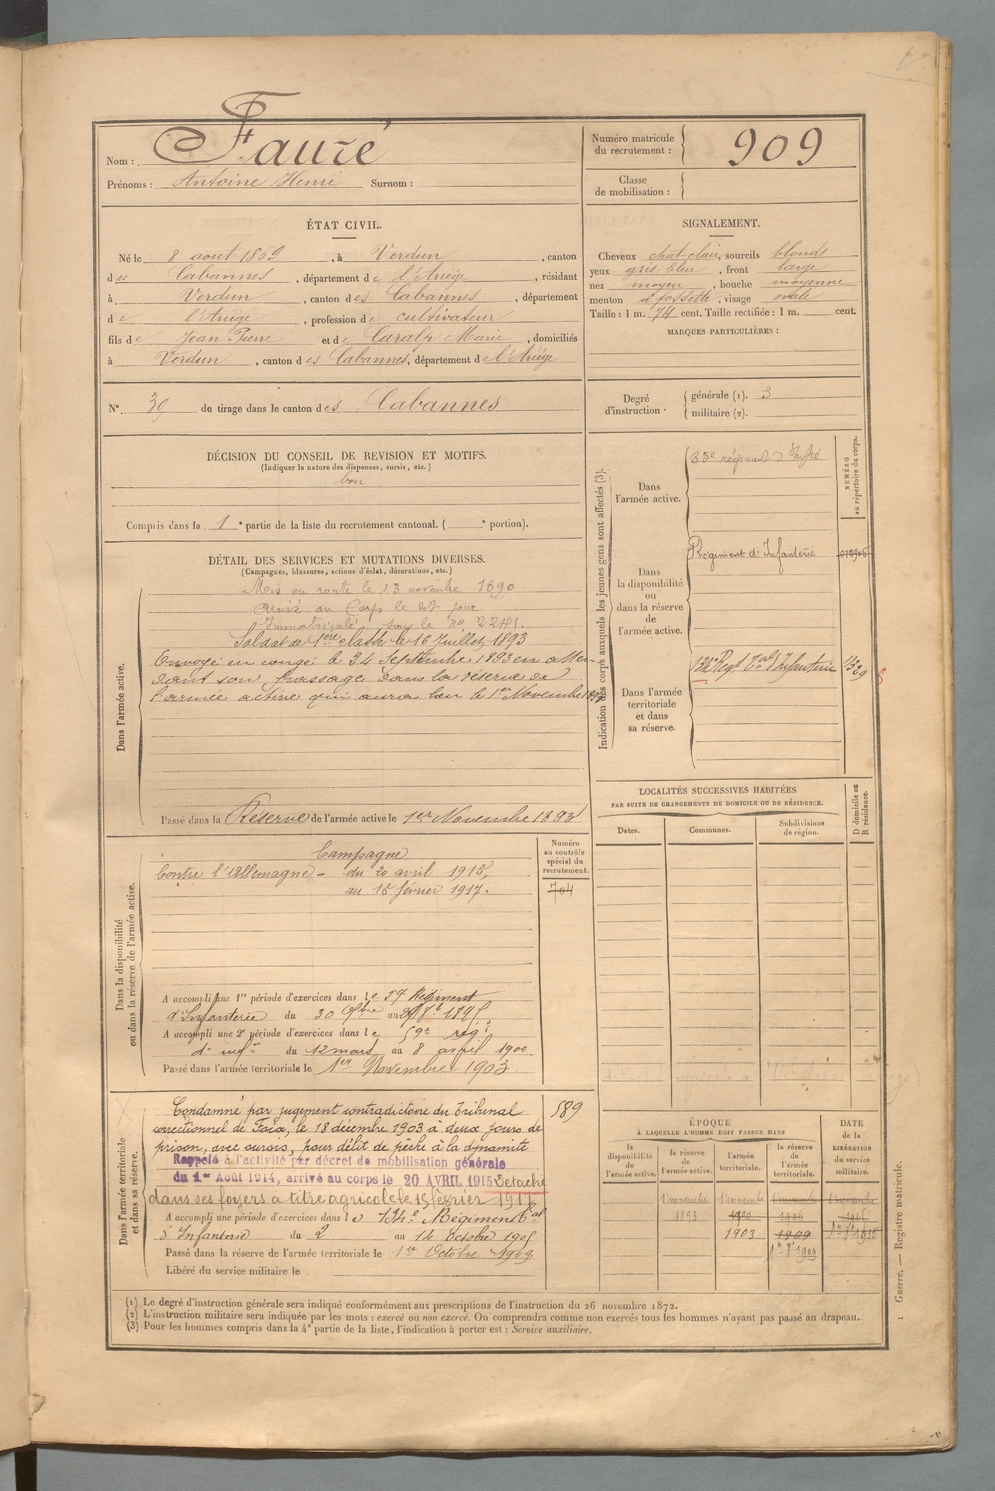 Nom : Fauré
Prénoms : Antoine Henri Surnom :
Numéro matricule du recrutement : 909
Classe de mobilisation :
ÉTAT CIVIL.
Né le 8 août 1869, à Verdun, canton
des Cabannes, département de l'Ariège, résidant
à Verdun, canton des Cabannes, département
de l'Ariège, profession de cultivateur
fils de Jean Pierre et de Caralp Marie, domiciliés
à Verdun, canton des Cabannes, département de l'Ariège
N° 39 de tirage dans le canton des Cabannes
SIGNALEMENT.
Cheveux chat-clair, sourcils blonds
yeux gris-bleu, front large
nez moyen, bouche moyenne
menton à fossette, visage ovale
Taille : 1 m. 74 cent. Taille rectifiée : 1 m. cent.
MARQUES PARTICULIÈRES :
Degré d'instruction.
générale (1). 3
militaire (2).
DÉCISION DU CONSEIL DE REVISION ET MOTIFS.
(Indiquer la nature des dispenses, sursis, etc.)
bon
Compris dans la 1e partie de la liste du recrutement cantonal. ( e portion).
DÉTAIL DES SERVICES ET MUTATIONS DIVERSES.
(Campagnes, blessures, actions d'éclat, décorations, etc.)
Dans l'armée active.
Mis en route le 13 novembre 1890
Arrivé au Corps le dit jour
Immatriculé sous le no
Soldat de 1ère classe le 16 Juillet 1893
Envoyé en congé le 24 Septembre 1893 en atten
dant son passage dans la réserve de
l'armée active qui aura lieu le 1er Novembre
Passé dans la Réserve de l'armée active le 1er Novembre 1893
Indication des corps auxquels les jeunes gens sont affectés (3).
NUMÉRO au répertoire du corps.
Dans l'armée active.
83e régiment d'Infrie
Dans la disponibilité ou dans la réserve de l'armée active.
Régiment d'Infanterie
Dans l'armée territoriale et dans sa réserve.
Regt d'Infanterie
LOCALITÉS SUCCESSIVES HABITÉES
PAR SUITE DE CHANGEMENTS DE DOMICILE OU DE RÉSIDENCE.
Dates. Communes. Subdivisions de région. D domicile ou R résidence.
Dans la disponibilité ou dans la réserve de l'armée active.
Numéro au contrôle spécial du recrutement.
704
Campagne
Contre l'Allemagne - du 20 avril 1915,
au 15 février 1917.
A accompli une 1re période d'exercices dans le 59 Régiment
d'Infanterie du 30 au 1895
A accompli une 2e période d'exercices dans le 59e rég.
d'infie du 12 mars au 8 avril 1900
Passé dans l'armée territoriale le 1er Novembre 1903
Dans l'armée territoriale et dans sa réserve.
589
Condamné par jugement contradictoire du Tribunal
correctionnel de Foix, le 18 décembre 1903 à deux jours de
prison, avec sursis, pour délit de pêche à la dynamite
Rappelé à l'activité par décret de mobilisation générale
du 1er Août 1914, arrivé au corps le 20 AVRIL 1915 Détaché
dans ses foyers à titre agricole le 15 février 1917
A accompli une période d'exercices dans le 134e Régiment tal
d'Infanterie du 2 au 14 octobre 1905
Passé dans la réserve de l'armée territoriale le 1er Octobre 1909
Libéré du service militaire le
ÉPOQUE
À LAQUELLE L'HOMME DOIT PASSER DANS
la disponibilité de l'armée active. la réserve de l'armée active. l'armée territoriale. la réserve de l'armée territoriale.
DATE de la LIBÉRATION du service militaire.
1er novembre 1er novembre 1er novembre 1er novembre
1893 1900 1906
1903 1909
(1) Le degré d'instruction générale sera indiqué conformément aux prescriptions de l'instruction du 26 novembre 1872.
(2) L'instruction militaire sera indiquée par les mots : exercé ou non exercé. On comprendra comme non exercés tous les hommes n'ayant pas passé au drapeau.
(3) Pour les hommes compris dans la 4e partie de la liste, l'indication à porter est : Service auxiliaire.
Guerre. — Registre matricule.